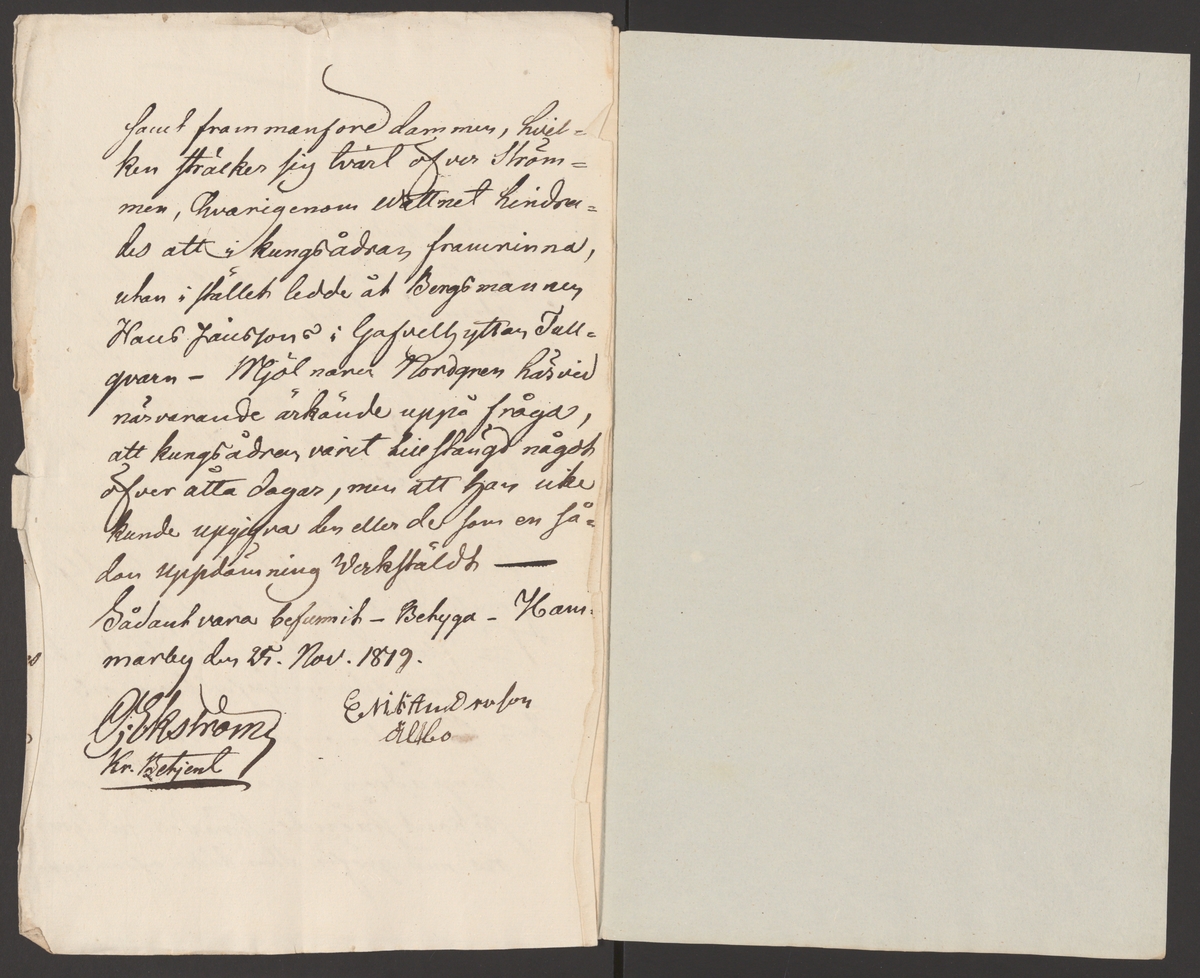 samt frammanföre dammen, hvil=
ken sträcker sig tvärt öfver Ström=
men, hvarigenom Wattnet hindra=
des att i kungsådran framrinna,
utan i stället ledde åt Bergsmannen
Hans Jansson's i Gafvelhyttan Tull=
qvarn – Mjölnaren Nordgren härvid
närvarande ärkände uppå fråga,
att kungsådran varit tillstängd något
öfver åtta dagar, men att han icke
kunde uppgifva den eller de som en så=
dan uppdämning Verkstäldt —
Sådant vara befunnit – Betyga – Ham=
marby den 25. Nov. 1819.
Ekström
Kr. Betjent
E Nils Andersson